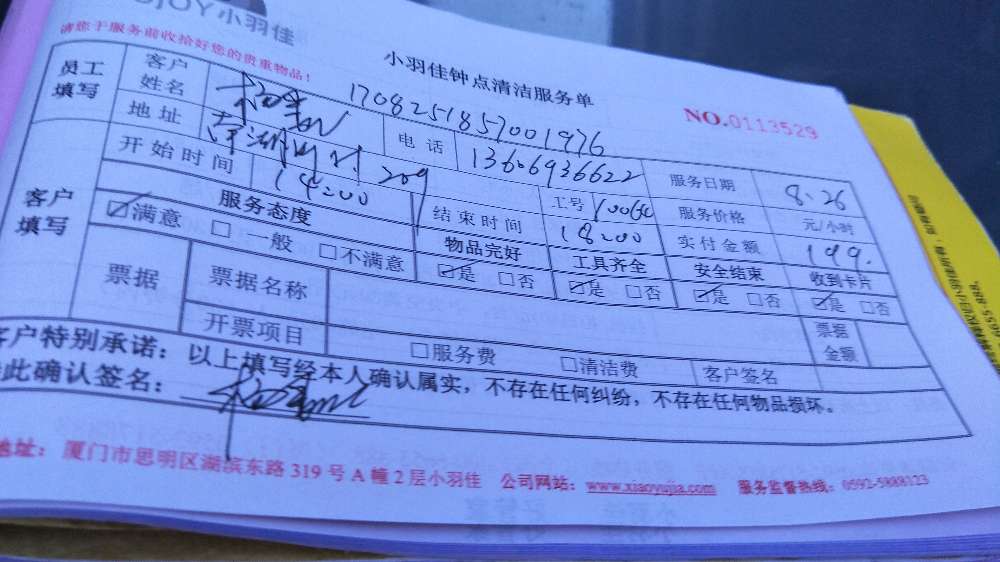 JOY小羽佳
请您于服务前收拾好您的贵重物品!
小羽佳钟点清洁服务单
NO.0113529
1708251857001976
员工填写 客户姓名 电话 13606936622 服务日期 8.26
地址 209 工号 服务价格 元/小时
开始时间 14:00 结束时间 18:00 实付金额 199.
客户填写 服务态度 物品完好 工具齐全 安全结束 收到卡片
☑满意 □一般 □不满意 ☑是 □否 ☑是 □否 ☑是 □否 ☑是 □否
票据 票据名称 票据金额
开票项目 □服务费 □清洁费 客户签名
客户特别承诺:以上填写经本人确认属实,不存在任何纠纷,不存在任何物品损坏。
此确认签名:
地址:厦门市思明区湖滨东路319号A幢2层小羽佳 公司网站:www.xiaoyujia.com 服务监督热线:0592-5888123